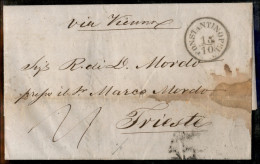 via Vienna
CONSTANTINOPEL
15
10
Sig. R. di D. Mordo
presso il Sr. Marco Mordo
Trieste